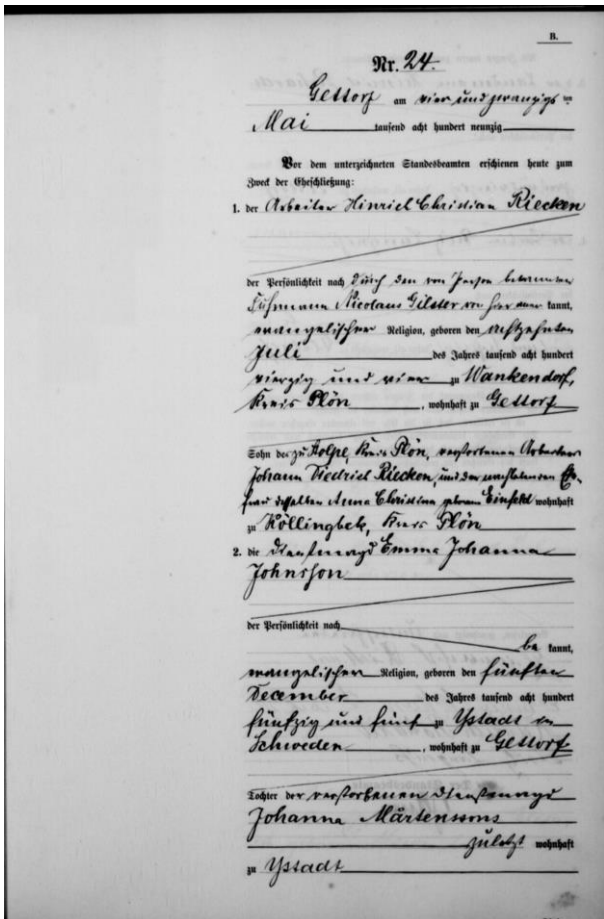 B.
Nr. 24.
Gettorf am vier und zwanzigs ten
Mai tausend acht hundert neunzig
Vor dem unterzeichneten Standesbeamten erschienen heute zum
Zweck der Eheschließung:
1. der Arbeiter Hinrich Christian Riecken
der Persönlichkeit nach durch den von Person bekannten
Nicolaus Gilster von hier kannt,
evangelischer Religion, geboren den
Juli des Jahres tausend acht hundert
vierzig und vier zu Wankendorf,
Kreis Plön, wohnhaft zu Gettorf
Sohn des zu Stolpe, Kreis Plön, verstorbenen Arbeiters
Johann Diedrich Riecken, und der nachlebenden Ehe-
frau desselben Anna Christina geborene Einfeldt wohnhaft
zu Köllingbek, Kreis Plön
2. die Dienstmagd Emma Johanna
Johnsson
der Persönlichkeit nach
be kannt,
evangelischer Religion, geboren den fünften
December des Jahres tausend acht hundert
fünfzig und fünf zu Ystadt in
Schweden, wohnhaft zu Gettorf
Tochter der verstorbenen Dienstmagd
Johanna Mårtenssons
zuletzt wohnhaft
zu Ystadt